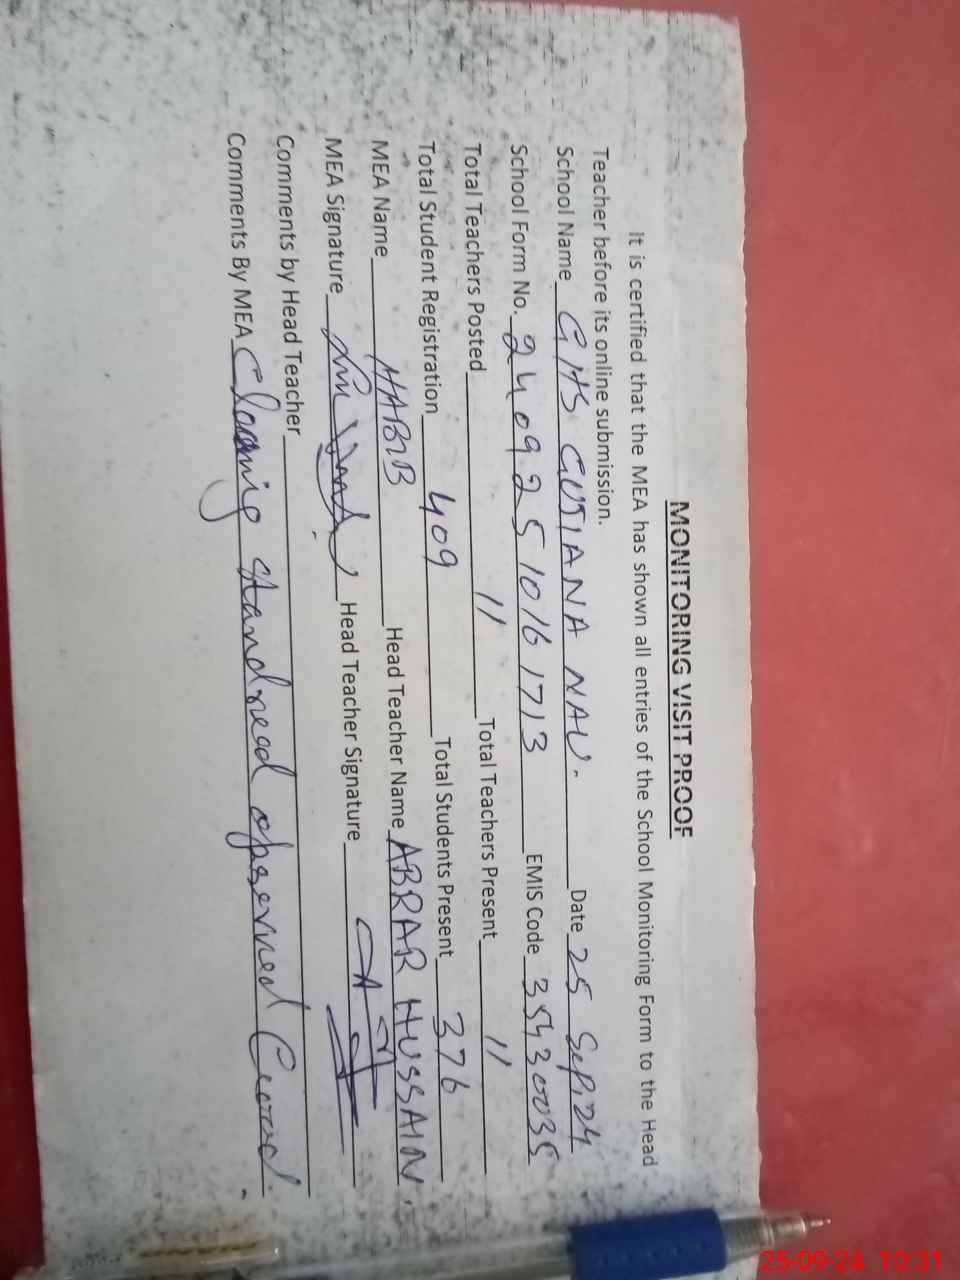 MONITORING VISIT PROOF
It is certified that the MEA has shown all entries of the School Monitoring Form to the Head
Teacher before its online submission.
School Name GHS GUJIANA NAU. Date 25 Sep, 24
School Form No. 240925101617 13 EMIS Code 35430035
Total Teachers Posted 11 Total Teachers Present 11
Total Student Registration 409 Total Students Present 376
MEA Name HABIB Head Teacher Name ABRAR HUSSAIN
MEA Signature Head Teacher Signature
Comments by Head Teacher
Comments By MEA observed Good
25-09-24 10:31